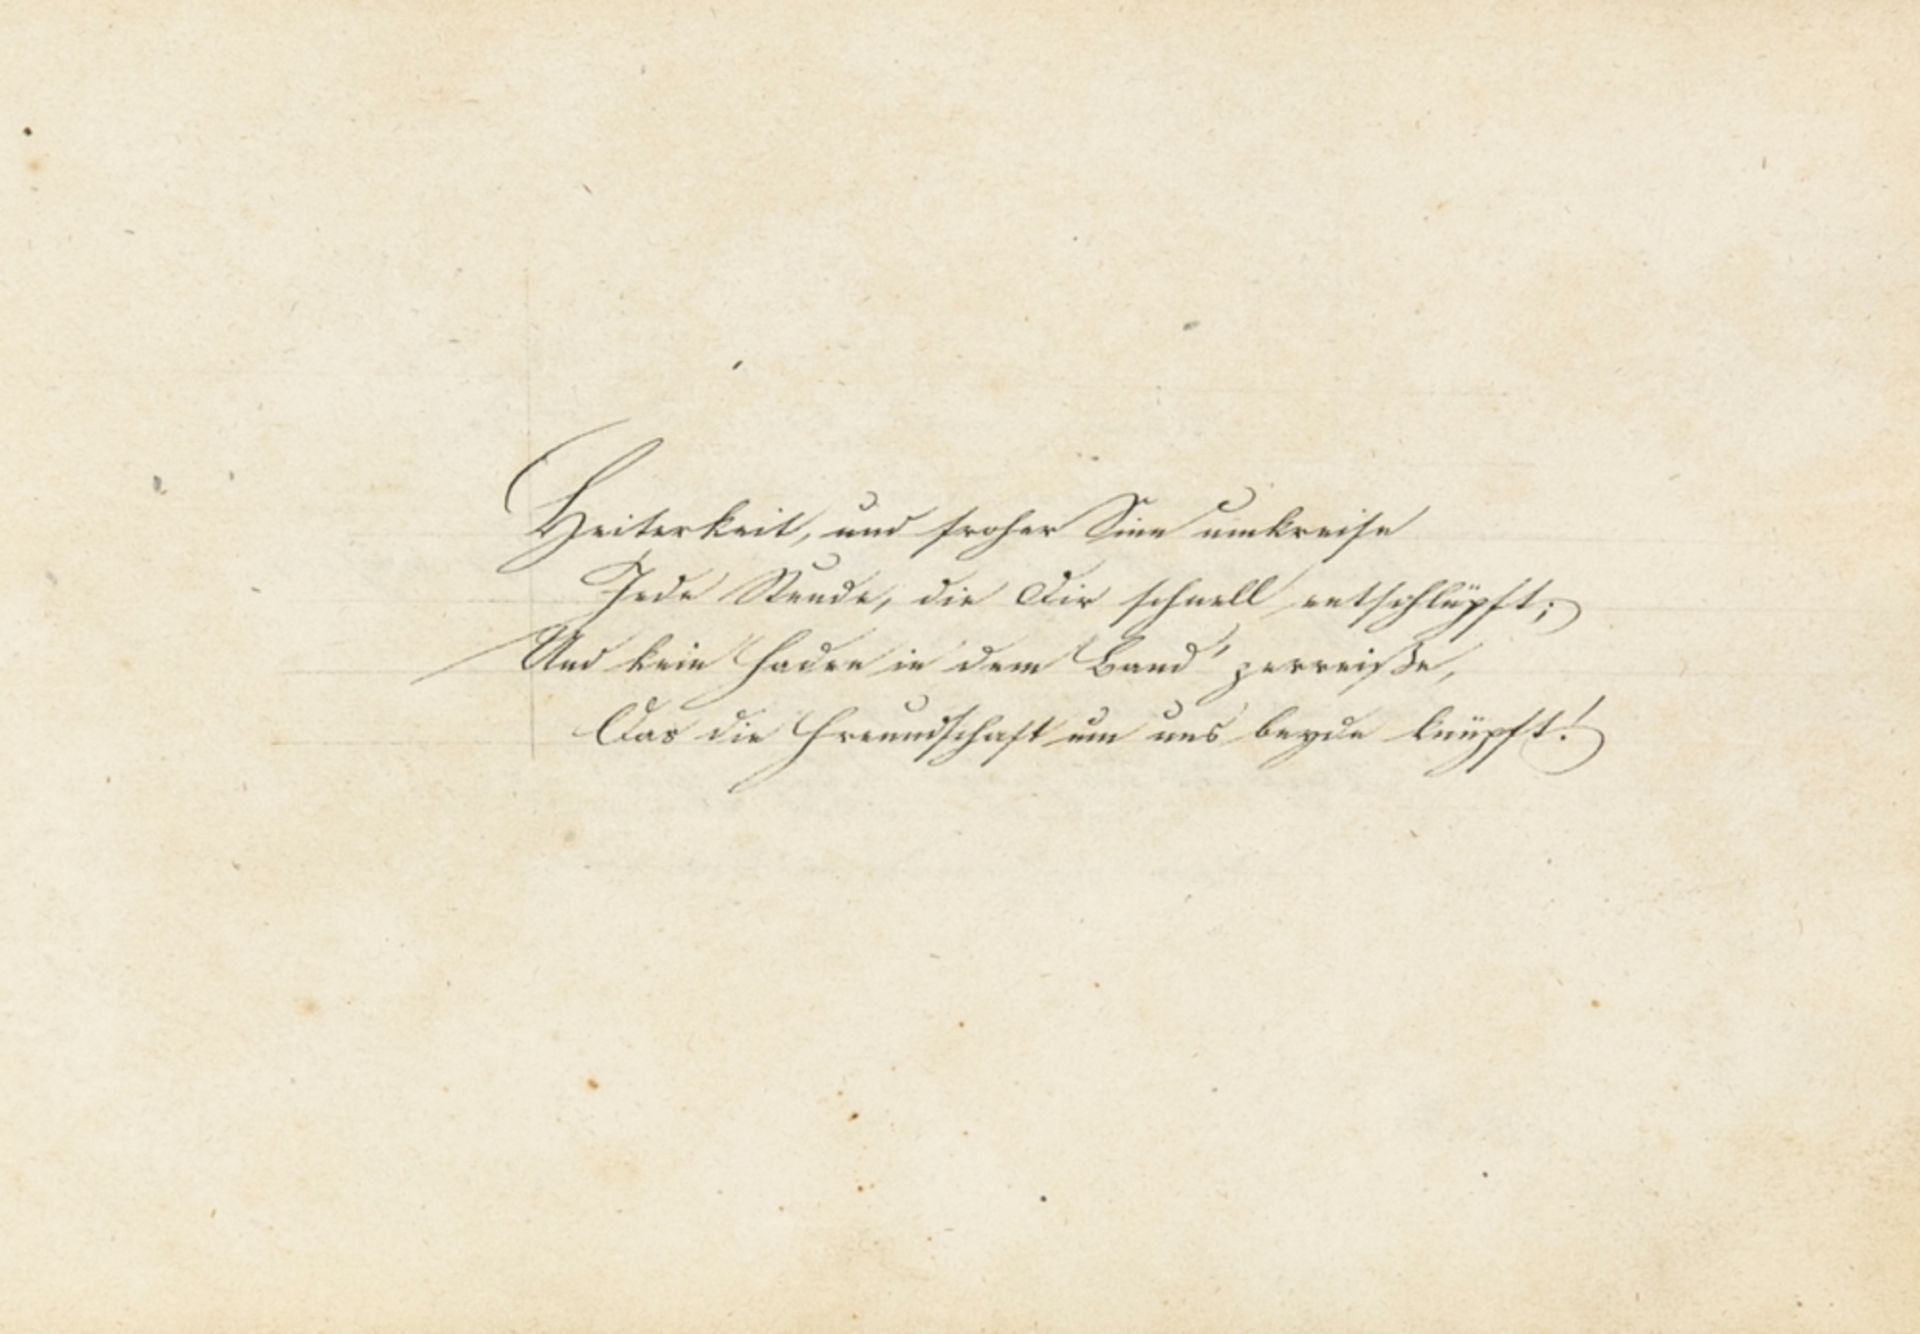 Heiterkeit, und froher Sinn umkreise
Jede Stunde, die Dir schnell entschlüpft;
Und kein Faden in dem Band' zerreiße,
Das die Freundschaft um uns beyde knüpft!